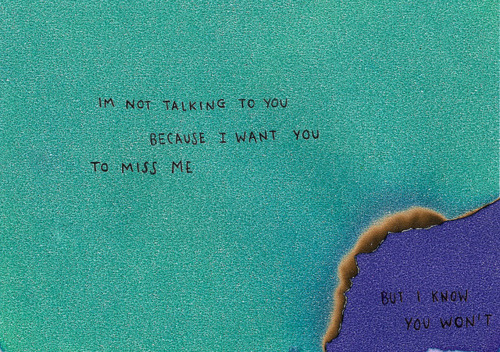 IM NOT TALKING TO YOU
BECAUSE I WANT YOU
TO MISS ME
BUT I KNOW
YOU WON'T